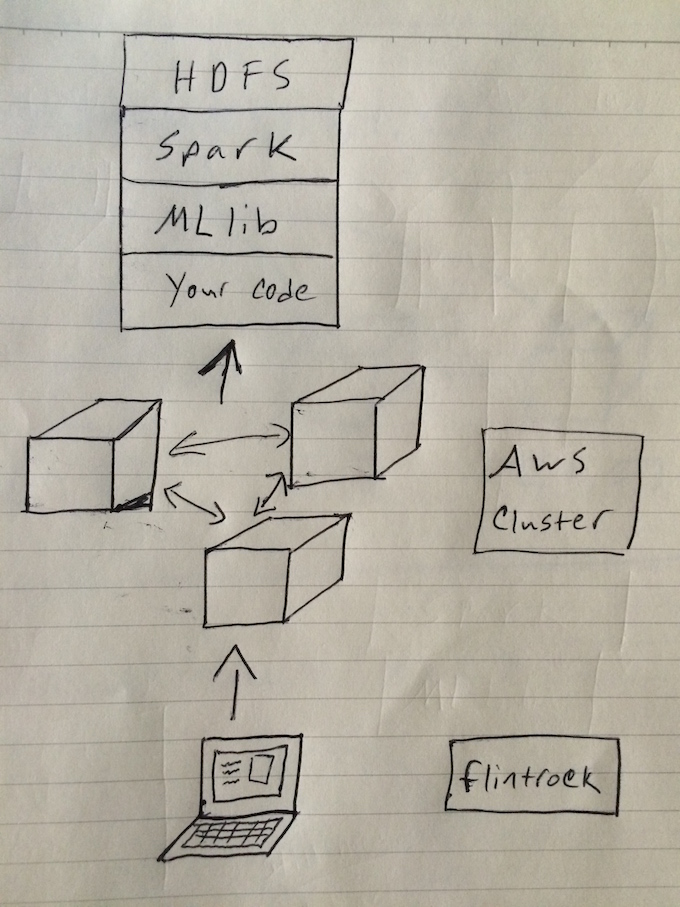 HDFS
Spark
MLlib
Your code
AWS
Cluster
flintrock